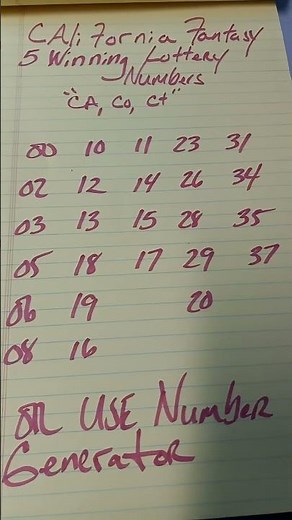 CAliFornia Fantasy
5 Winning Lottery
Numbers
"CA, CO, Ct"
00 10 11 23 31
02 12 14 26 34
03 13 15 28 35
05 18 17 29 37
06 19 20
08 16
OR USE Number
Generator